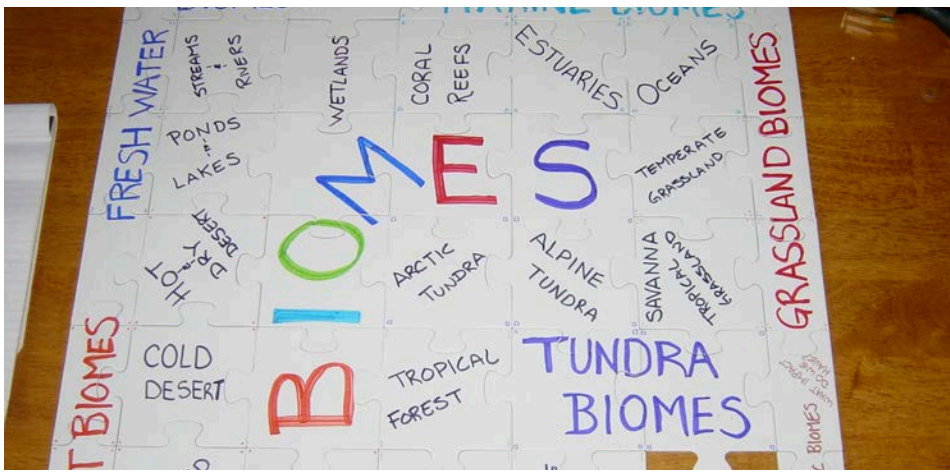 BIOMES
MARINE BIOMES
FRESH WATER
STREAMS
&
RIVERS
WETLANDS
CORAL
REEFS
ESTUARIES
OCEANS
GRASSLAND BIOMES
PONDS
&
LAKES
BIOMES
TEMPERATE
GRASSLAND
HOT
&
DRY
DESERT
ARCTIC
TUNDRA
ALPINE
TUNDRA
SAVANNA
TROPICAL
GRASSLAND
T BIOMES
COLD
DESERT
TROPICAL
FOREST
TUNDRA
BIOMES
WHAT IMPACT
DO WE
HAVE?
BIOMES